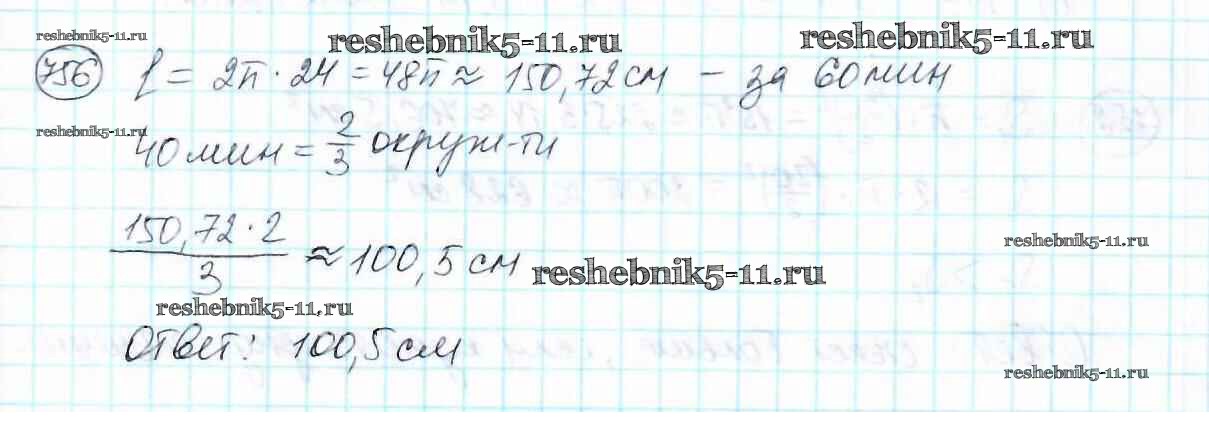 reshebnik5-11.ru
reshebnik5-11.ru
reshebnik5-11.ru
756 l = 2π · 24 = 48π ≈ 150,72 см – за 60 мин
reshebnik5-11.ru
40 мин = 2/3 окруж-ти
150,72 · 2 / 3 ≈ 100,5 см
reshebnik5-11.ru
reshebnik5-11.ru
reshebnik5-11.ru
Ответ: 100,5 см
reshebnik5-11.ru